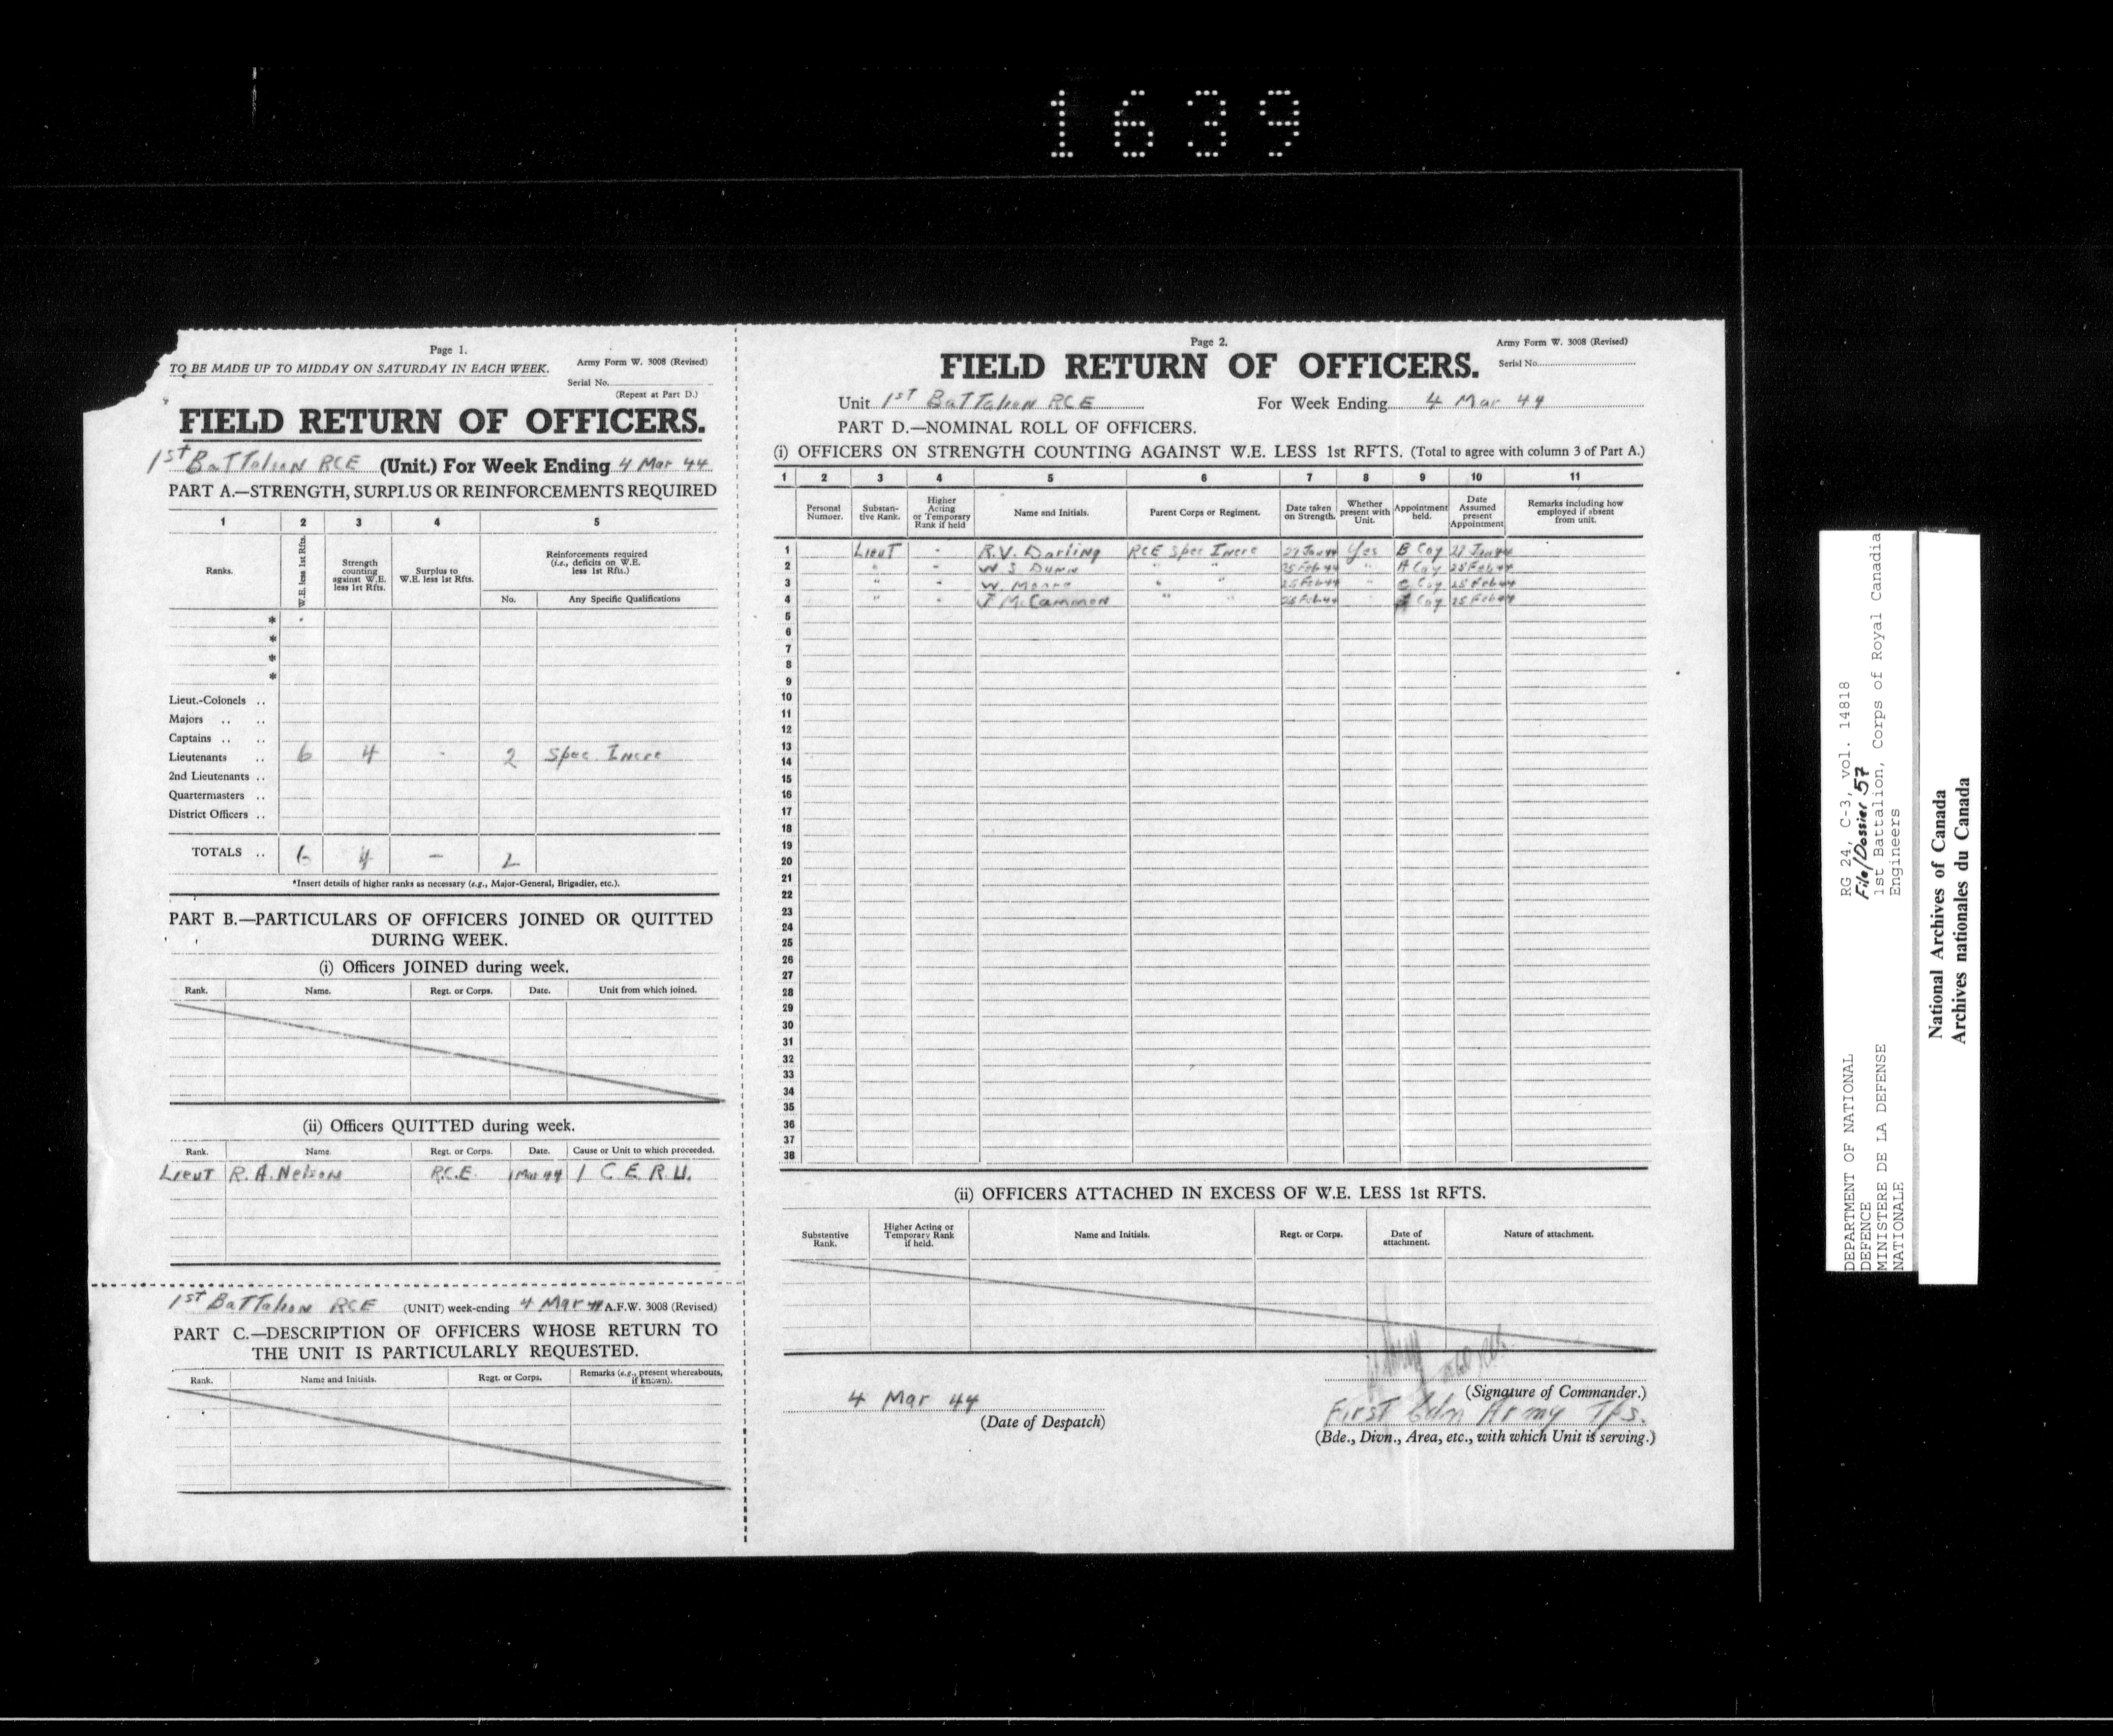 1639
Page 1.
TO BE MADE UP TO MIDDAY ON SATURDAY IN EACH WEEK.
Army Form W. 3008 (Revised)
Serial No.
(Repeat at Part D.)
FIELD RETURN OF OFFICERS.
1st Battalion RCE (Unit.) For Week Ending 4 Mar 44
PART A.—STRENGTH, SURPLUS OR REINFORCEMENTS REQUIRED
1 2 3 4 5
Ranks.
W.E. less 1st Rfts.
Strength counting against W.E. less 1st Rfts.
Surplus to W.E. less 1st Rfts.
Reinforcements required (i.e., deficits on W.E. less 1st Rfts.)
No. Any Specific Qualifications
*
*
*
*
Lieut.-Colonels ..
Majors .. ..
Captains .. ..
Lieutenants .. 6 4 - 2 Spec. Incre
2nd Lieutenants ..
Quartermasters ..
District Officers ..
TOTALS .. 6 4 - 2
*Insert details of higher ranks as necessary (e.g., Major-General, Brigadier, etc.).
PART B.—PARTICULARS OF OFFICERS JOINED OR QUITTED
DURING WEEK.
(i) Officers JOINED during week.
Rank. Name. Regt. or Corps. Date. Unit from which joined.
(ii) Officers QUITTED during week.
Rank. Name. Regt. or Corps. Date. Cause or Unit to which proceeded.
Lieut R. A. Nelson R.C.E. 1 Mar 44 1 C.E.R.U.
1st Battalion RCE (UNIT) week-ending 4 Mar 44 A.F.W. 3008 (Revised)
PART C.—DESCRIPTION OF OFFICERS WHOSE RETURN TO
THE UNIT IS PARTICULARLY REQUESTED.
Rank. Name and Initials. Regt. or Corps. Remarks (e.g., present whereabouts, if known).
Page 2.
Army Form W. 3008 (Revised)
FIELD RETURN OF OFFICERS.
Serial No.
Unit 1st Battalion RCE For Week Ending 4 Mar 44
PART D.—NOMINAL ROLL OF OFFICERS.
(i) OFFICERS ON STRENGTH COUNTING AGAINST W.E. LESS 1st RFTS. (Total to agree with column 3 of Part A.)
1 2 3 4 5 6 7 8 9 10 11
Personal Number.
Substantive Rank.
Higher Acting or Temporary Rank if held
Name and Initials.
Parent Corps or Regiment.
Date taken on Strength.
Whether present with Unit.
Appointment held.
Date Assumed present Appointment
Remarks including how employed if absent from unit.
1 Lieut - R.V. Darling RCE Spec Incre 27 Jan 44 Yes B Coy 27 Jan 44
2 " - W S Dunn " " 25 Feb 44 " A Coy 25 Feb 44
3 " - W. Moore " " 25 Feb 44 " C Coy 25 Feb 44
4 " - J McCammon " " 26 Feb 44 " Coy 25 Feb 44
5
6
7
8
9
10
11
12
13
14
15
16
17
18
19
20
21
22
23
24
25
26
27
28
29
30
31
32
33
34
35
36
37
38
(ii) OFFICERS ATTACHED IN EXCESS OF W.E. LESS 1st RFTS.
Substentive Rank. Higher Acting or Temporary Rank if held. Name and Initials. Regt. or Corps. Date of attachment. Nature of attachment.
(Signature of Commander.)
4 Mar 44
(Date of Despatch)
First Cdn Army Tps.
(Bde., Divn., Area, etc., with which Unit is serving.)
DEPARTMENT OF NATIONAL
DEFENCE
MINISTERE DE LA DEFENSE
NATIONALE
RG 24, C-3, vol. 14818
File/Dossier 57
1st Battalion, Corps of Royal Canadia
Engineers
National Archives of Canada
Archives nationales du Canada